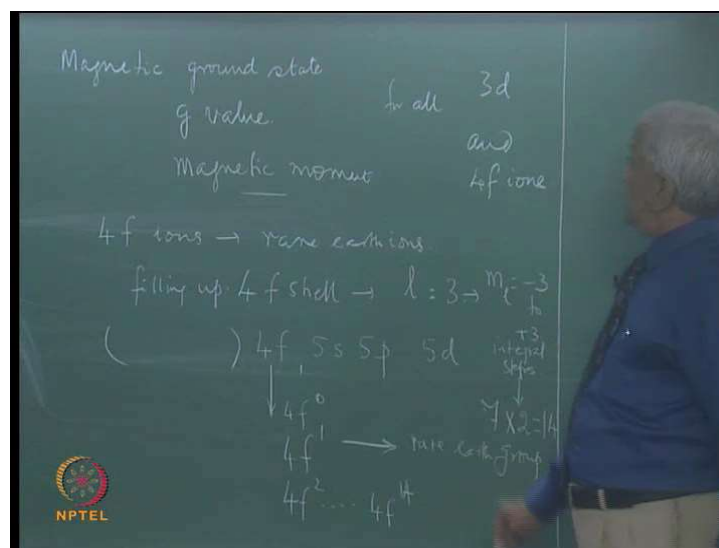 Magnetic ground state
g value.
Magnetic moment
for all 3d
and
4f ions
4f ions → rare earth ions
filling up 4f shell → l = 3 → m_l = -3
to
+3
integral
steps
( ) 4f, 5s 5p 5d
7 x 2 = 14
4f⁰
4f¹ → rare earth group
4f² .... 4f¹⁴
NPTEL